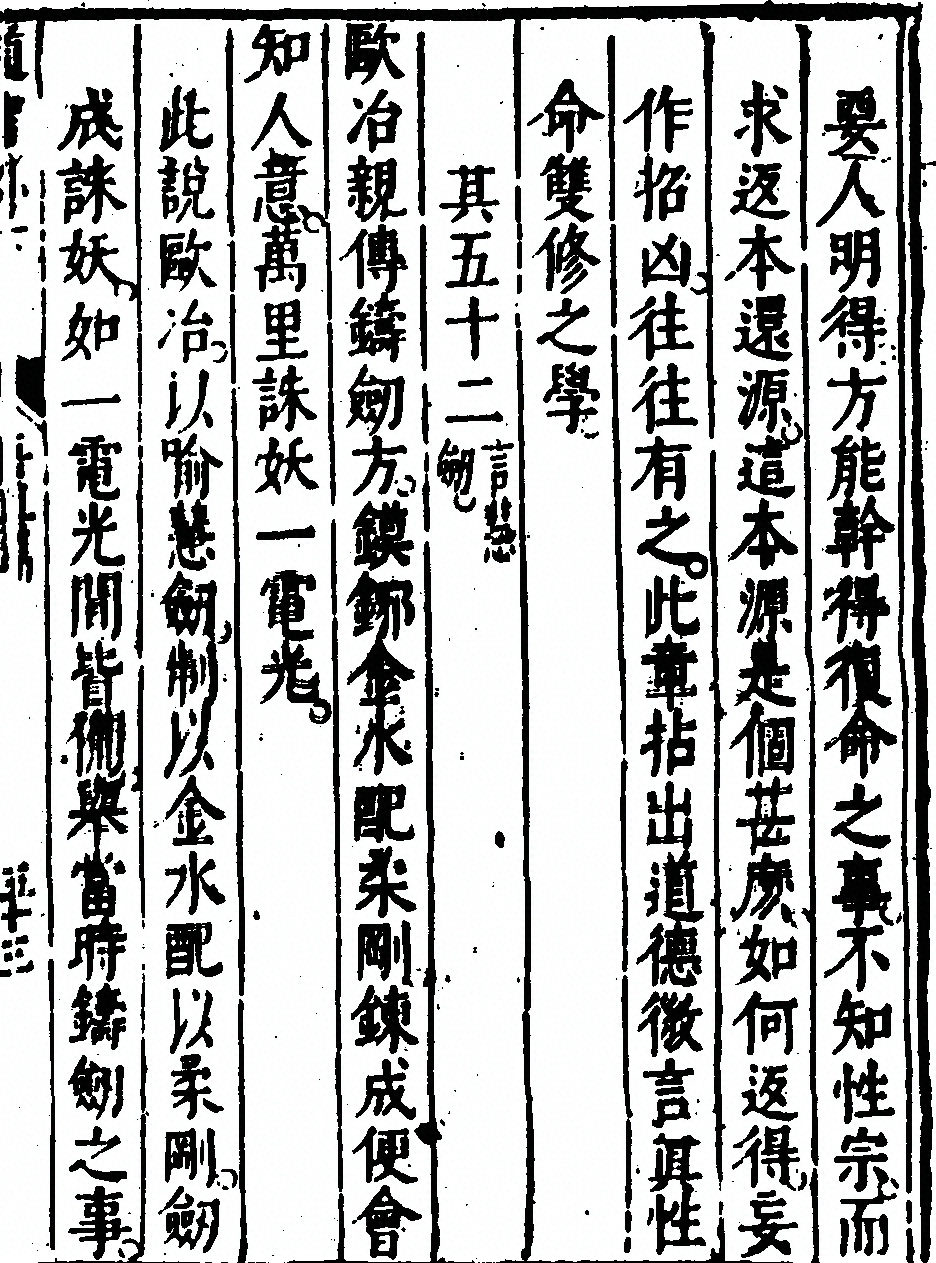 要人明得方能幹得復命之事不知性宗而
求返本還源這本源是個甚麽如何返得妄
作招凶往往有之此章拈出道德微言眞性
命雙修之學
其五十二言慧劒
歐冶親傳鑄劒方鏌鋣金水配柔剛鍊成便會
知人意萬里誅妖一電光
此說歐冶以喻慧劒制以金水配以柔剛劒
成誅妖如一電光間皆備舉當時鑄劒之事